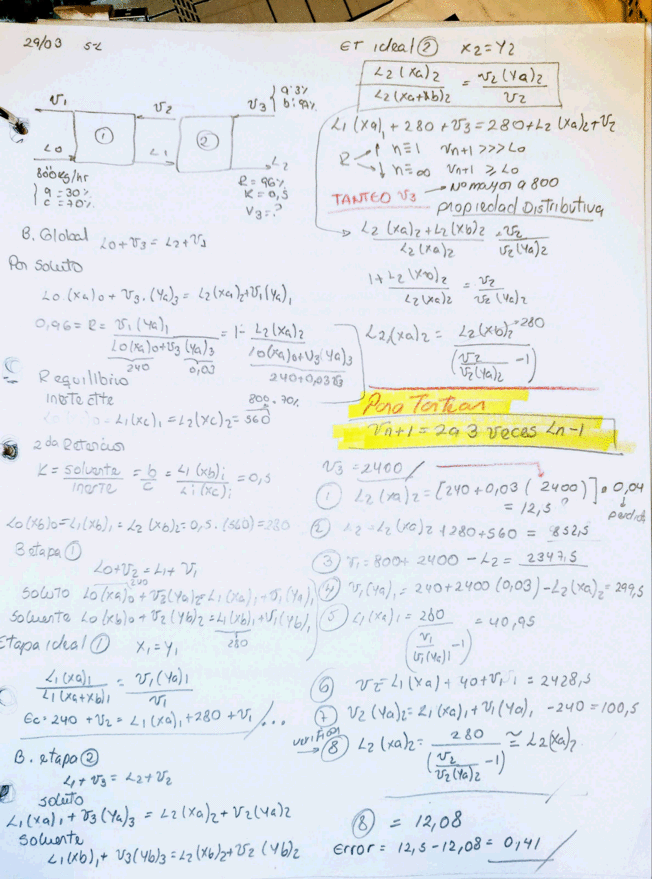 29/03 SL
V1
V2
V3 { a: 3%
b: 97%
①
②
L0
L1
L2
800 kg/hr
{ a = 30%
c = 70%
R = 96%
K = 0,5
V3 = ?
B. Global L0 + V3 = L2 + V3
Por soluto
L0 (xa)0 + V3 . (Ya)3 = L2 (xa)2 + V1 (Ya)1
0,96 = R = V1 (Ya)1 / (L0 (xa)0 + V3 (Ya)3) = 1 - L2 (xa)2 / (L0 (xa)0 + V3 (Ya)3)
240 0,03
240 + 0,03 V3
R equilibrio
inerte ctte 800 . 70%
= L1 (xc)1 = L2 (xc)2 = 560
2 da Retención
K = solvente / inerte = b / c = Li (xb)i / Li (xc)i = 0,5
L0 (xb)0 = L1 (xb)1 = L2 (xb)2 = 0,5 . (560) = 280
B etapa ①
L0 + V2 = L1 + V1
240
soluto L0 (xa)0 + V2 (Ya)2 = L1 (xa)1 + V1 (Ya)1
solvente L0 (xb)0 + V2 (Yb)2 = L1 (xb)1 + V1 (Yb)1
280
Etapa ideal ① X1 = Y1
L1 (xa)1 / L1 (xa + xb)1 = V1 (Ya)1 / V1
Ec: 240 + V2 = L1 (xa)1 + 280 + V1 ...
B. etapa ②
L1 + V3 = L2 + V2
soluto
L1 (xa)1 + V3 (Ya)3 = L2 (xa)2 + V2 (Ya)2
solvente
L1 (xb)1 + V3 (Yb)3 = L2 (xb)2 + V2 (Yb)2
ET ideal ② X2 = Y2
L2 (xa)2 / L2 (xa + xb)2 = V2 (Ya)2 / V2
L1 (xa)1 + 280 + V3 = 280 + L2 (xa)2 + V2
R ↑ n = 1 Vn+1 >>> L0
↓ n = ∞ Vn+1 ≥ L0
TANTEO V3 → No mayor a 800
propiedad Distributiva
L2 (xa)2 + L2 (xb)2 / L2 (xa)2 = V2 / V2 (Ya)2
1 + L2 (xb)2 / L2 (xa)2 = V2 / V2 (Ya)2
L2 (xa)2 = L2 (xb)2 = 280 / (V2 / V2 (Ya)2 - 1)
Para Tantear
Vn+1 = 2 a 3 veces Ln-1
V3 = 2400
① L2 (xa)2 = [240 + 0,03 (2400)] . 0,04
= 12,5 ? perdida
② L2 = L2 (xa)2 + 280 + 560 = 852,5
③ V1 = 800 + 2400 - L2 = 2347,5
④ V1 (Ya)1 = 240 + 2400 (0,03) - L2 (xa)2 = 299,5
⑤ L1 (xa)1 = 280 / (V1 / V1 (Ya)1 - 1) = 40,95
⑥ V2 = L1 (xa) + 40 + V1 = 2428,5
⑦ V2 (Ya)2 = L1 (xa)1 + V1 (Ya)1 - 240 = 100,5
verificar
⑧ L2 (xa)2 = 280 / (V2 / V2 (Ya)2 - 1) ≅ L2 (xa)2
⑧ = 12,08
Error = 12,5 - 12,08 = 0,41